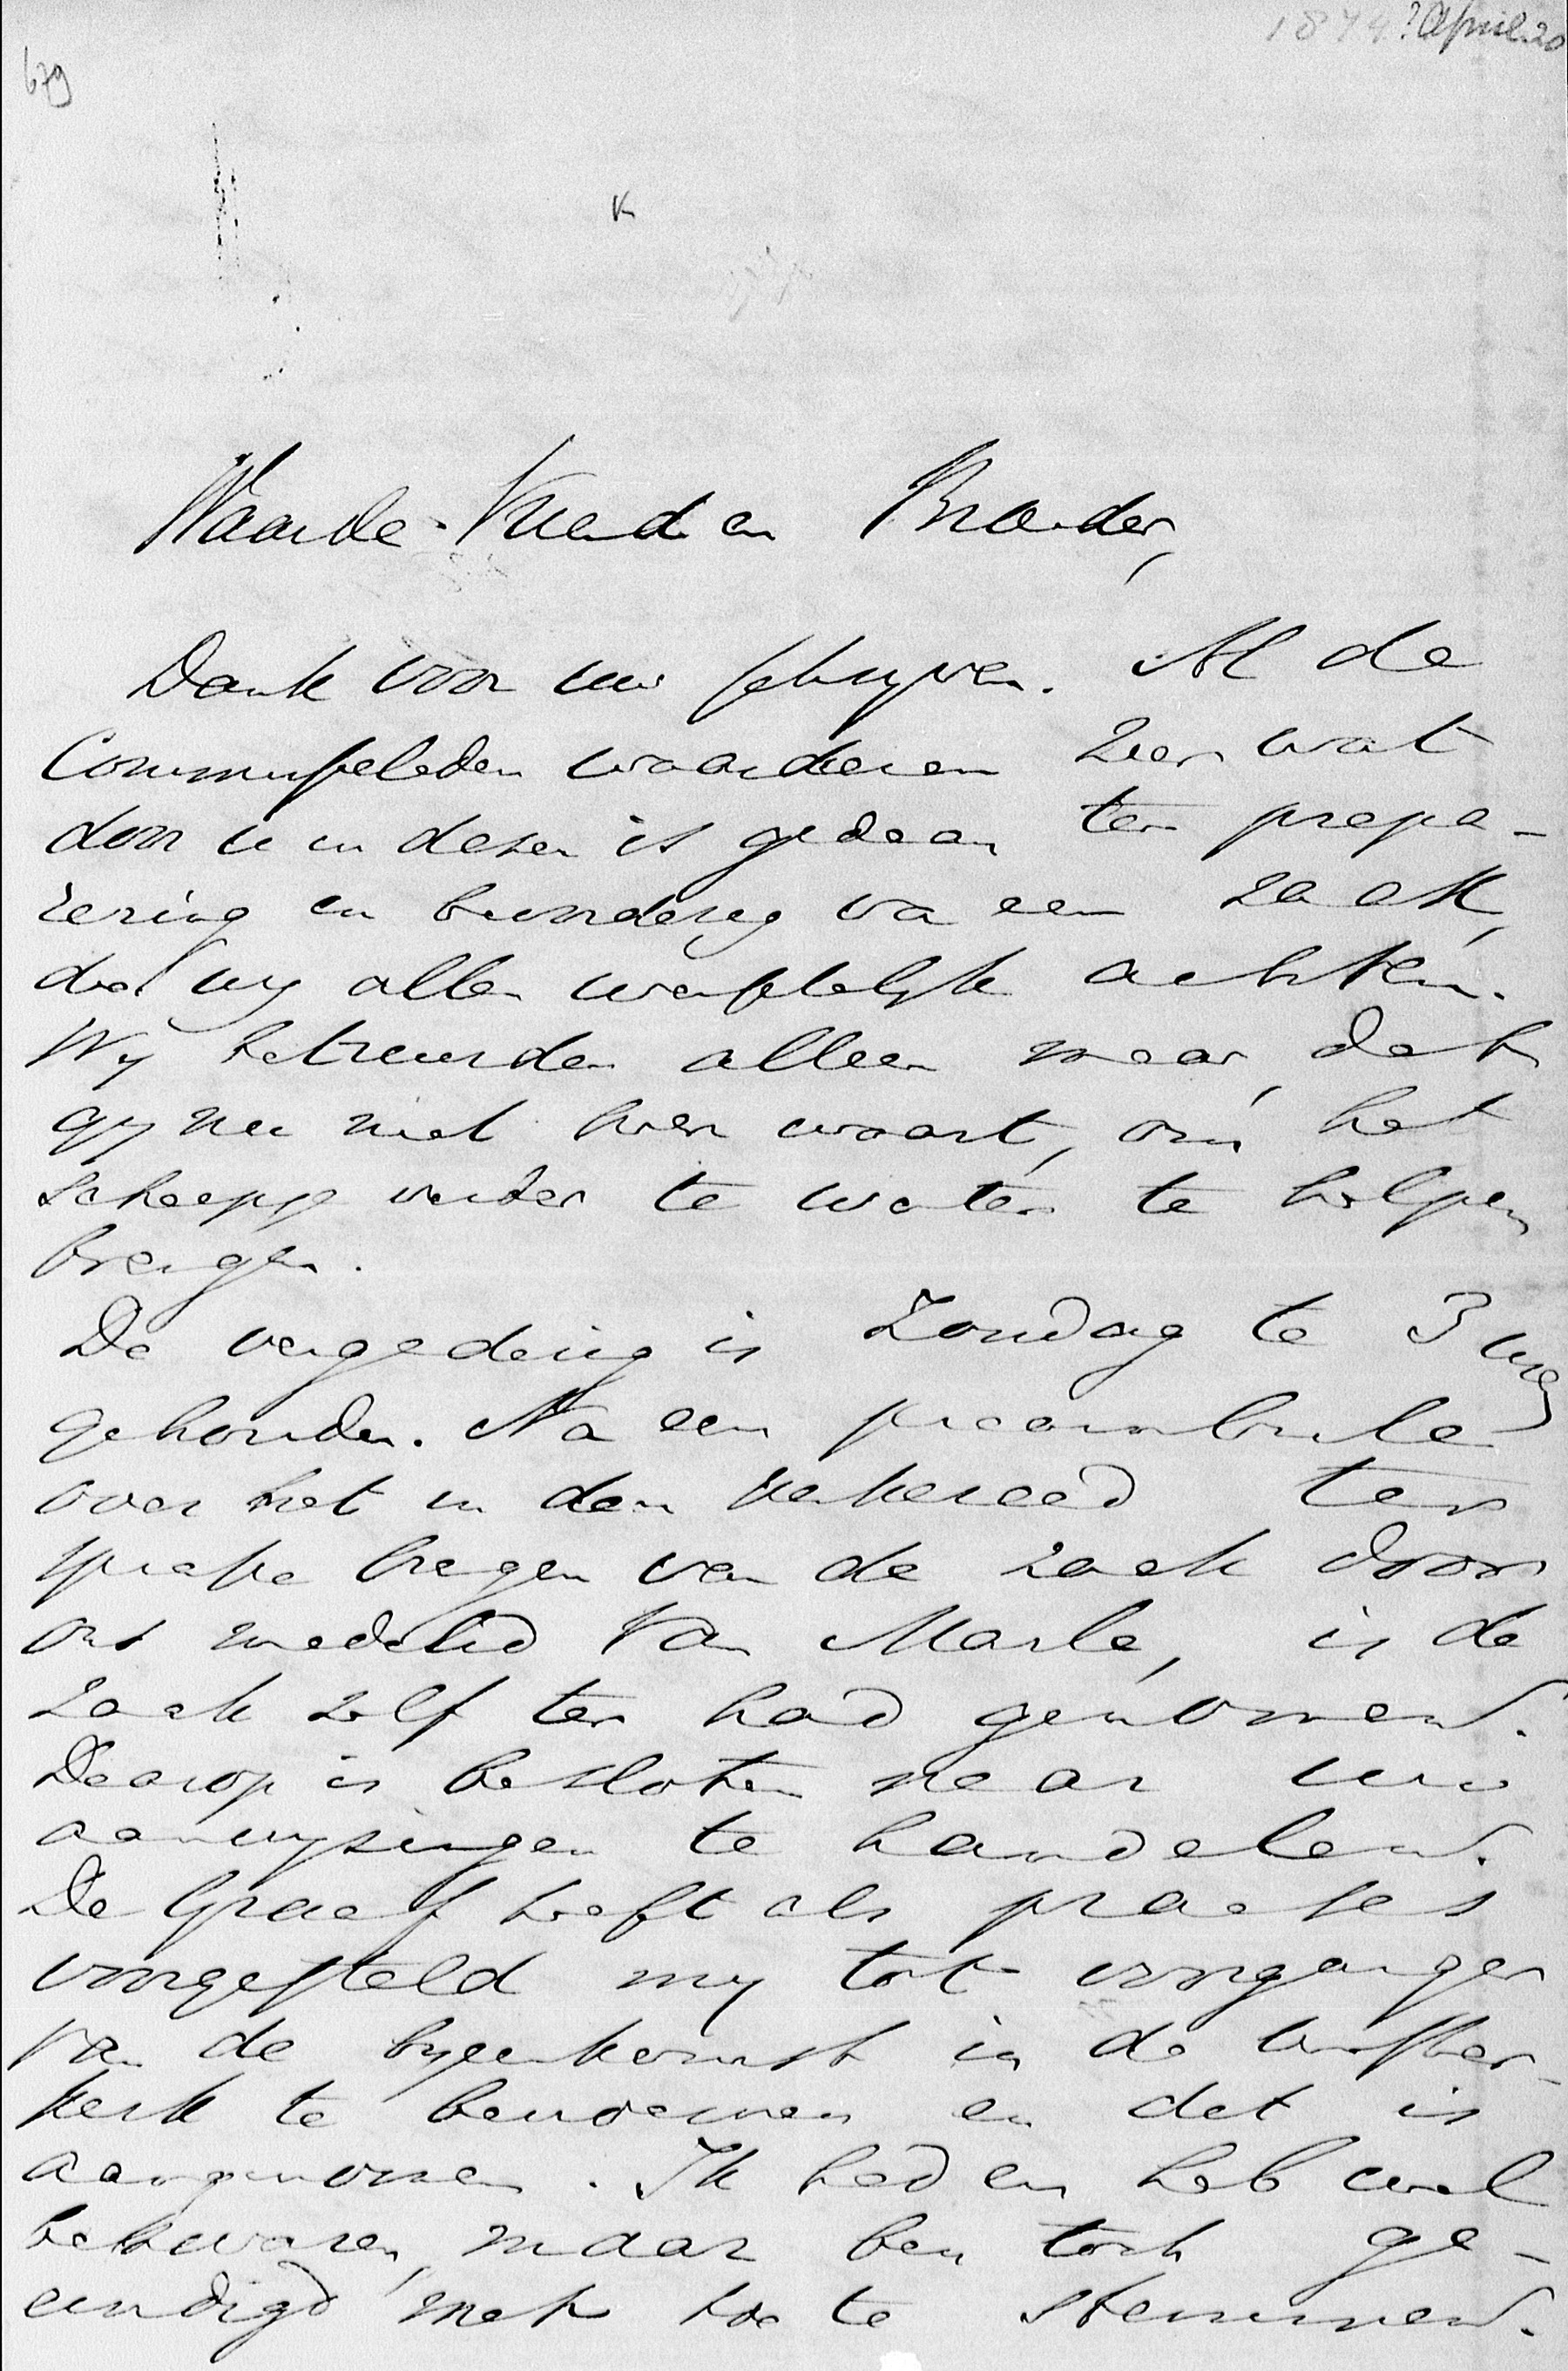 1874? April 20
679
K
Waarde Vriend en Broeder,
Dank voor uw schrijven. Al de
Commissieleden waarderen zeer wat
door u in dezen is gedaan ter prepa-
rering en van een zaak,
die wij allen wenschelijk achten.
Wij betreurden alleen maar, dat
gij nu niet hier waart, om het
scheepje verder te water te helpen
brengen.
De vergadering is Zondag te 3 ure
gehouden. Na een preambule
over het in den kerkeraad ter
sprake brengen van de zaak door
ons medelid Van Marle, is de
zaak zelf ter hand genomen.
Daarop is besloten naar uw
aanwijzingen te handelen.
De Graaf heeft als praeses
voorgesteld mij tot voorganger
van de bijeenkomst in de
kerk te benoemen en dat is
aangenomen. Ik had en heb wel
bezwaren, maar ben toch ge-
eindigd met toe te stemmen.